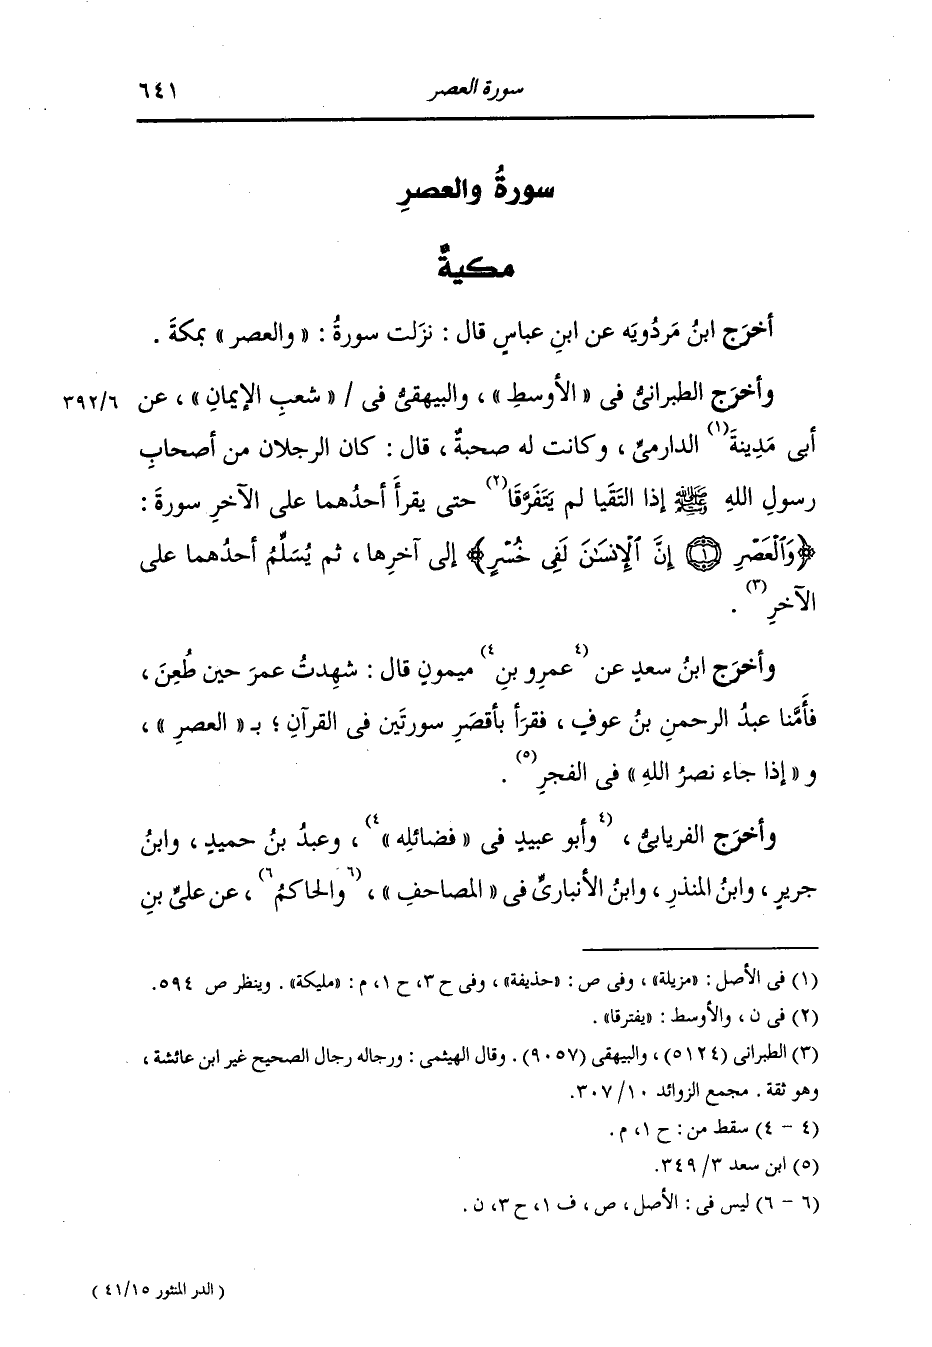 سورة العصر ٦٤١
سورةُ والعصرِ
مكيةٌ
أخرَج ابنُ مَردُويَه عن ابنِ عباسٍ قال : نزَلت سورةُ : « والعصر » بمكةَ .
وأخرَج الطبرانىُّ فى « الأوسطِ » ، والبيهقىُّ فى / « شعبِ الإيمانِ » ، عن ٣٩٢/٦
أبى مَدِينةَ(١) الدارمىِّ ، وكانت له صحبةٌ ، قال : كان الرجلان من أصحابِ
رسولِ اللهِ ﷺ إذا التَقَيا لم يَتَفَرَّقَا(٢) حتى يقرأَ أحدُهما على الآخرِ سورةَ :
﴿وَٱلْعَصْرِ ۝١ إِنَّ ٱلْإِنسَٰنَ لَفِى خُسْرٍ﴾ إلى آخرِها ، ثم يُسَلِّمُ أحدُهما على
الآخرِ(٣) .
وأخرَج ابنُ سعدٍ عن (٤عمرِو بنِ٤) ميمونٍ قال : شهِدتُ عمرَ حين طُعِنَ ،
فأَمَّنا عبدُ الرحمنِ بنُ عوفٍ ، فقرَأ بأقصَرِ سورتَين فى القرآنِ ؛ بـ « العصرِ » ،
و « إذا جاء نصرُ اللهِ » فى الفجرِ(٥) .
وأخرَج الفريابىُّ ، (٤وأبو عبيدٍ فى « فضائلِه »٤) ، وعبدُ بنُ حميدٍ ، وابنُ
جريرٍ ، وابنُ المنذرِ ، وابنُ الأنبارىِّ فى « المصاحفِ » ، (٦والحاكمُ٦) ، عن علىِّ بنِ
(١) فى الأصل : «مزيلة» ، وفى ص : «حذيفة» ، وفى ح ٣، ح ١، م : «مليكة» . وينظر ص ٥٩٤.
(٢) فى ن ، والأوسط : «يفترقا» .
(٣) الطبرانى (٥١٢٤) ، والبيهقى (٩٠٥٧) . وقال الهيثمى : ورجاله رجال الصحيح غير ابن عائشة ،
وهو ثقة . مجمع الزوائد ٣٠٧/١٠.
(٤ - ٤) سقط من : ح ١، م .
(٥) ابن سعد ٣٤٩/٣.
(٦ - ٦) ليس فى : الأصل ، ص ، ف ١، ح ٣، ن .
( الدر المنثور ٤١/١٥ )